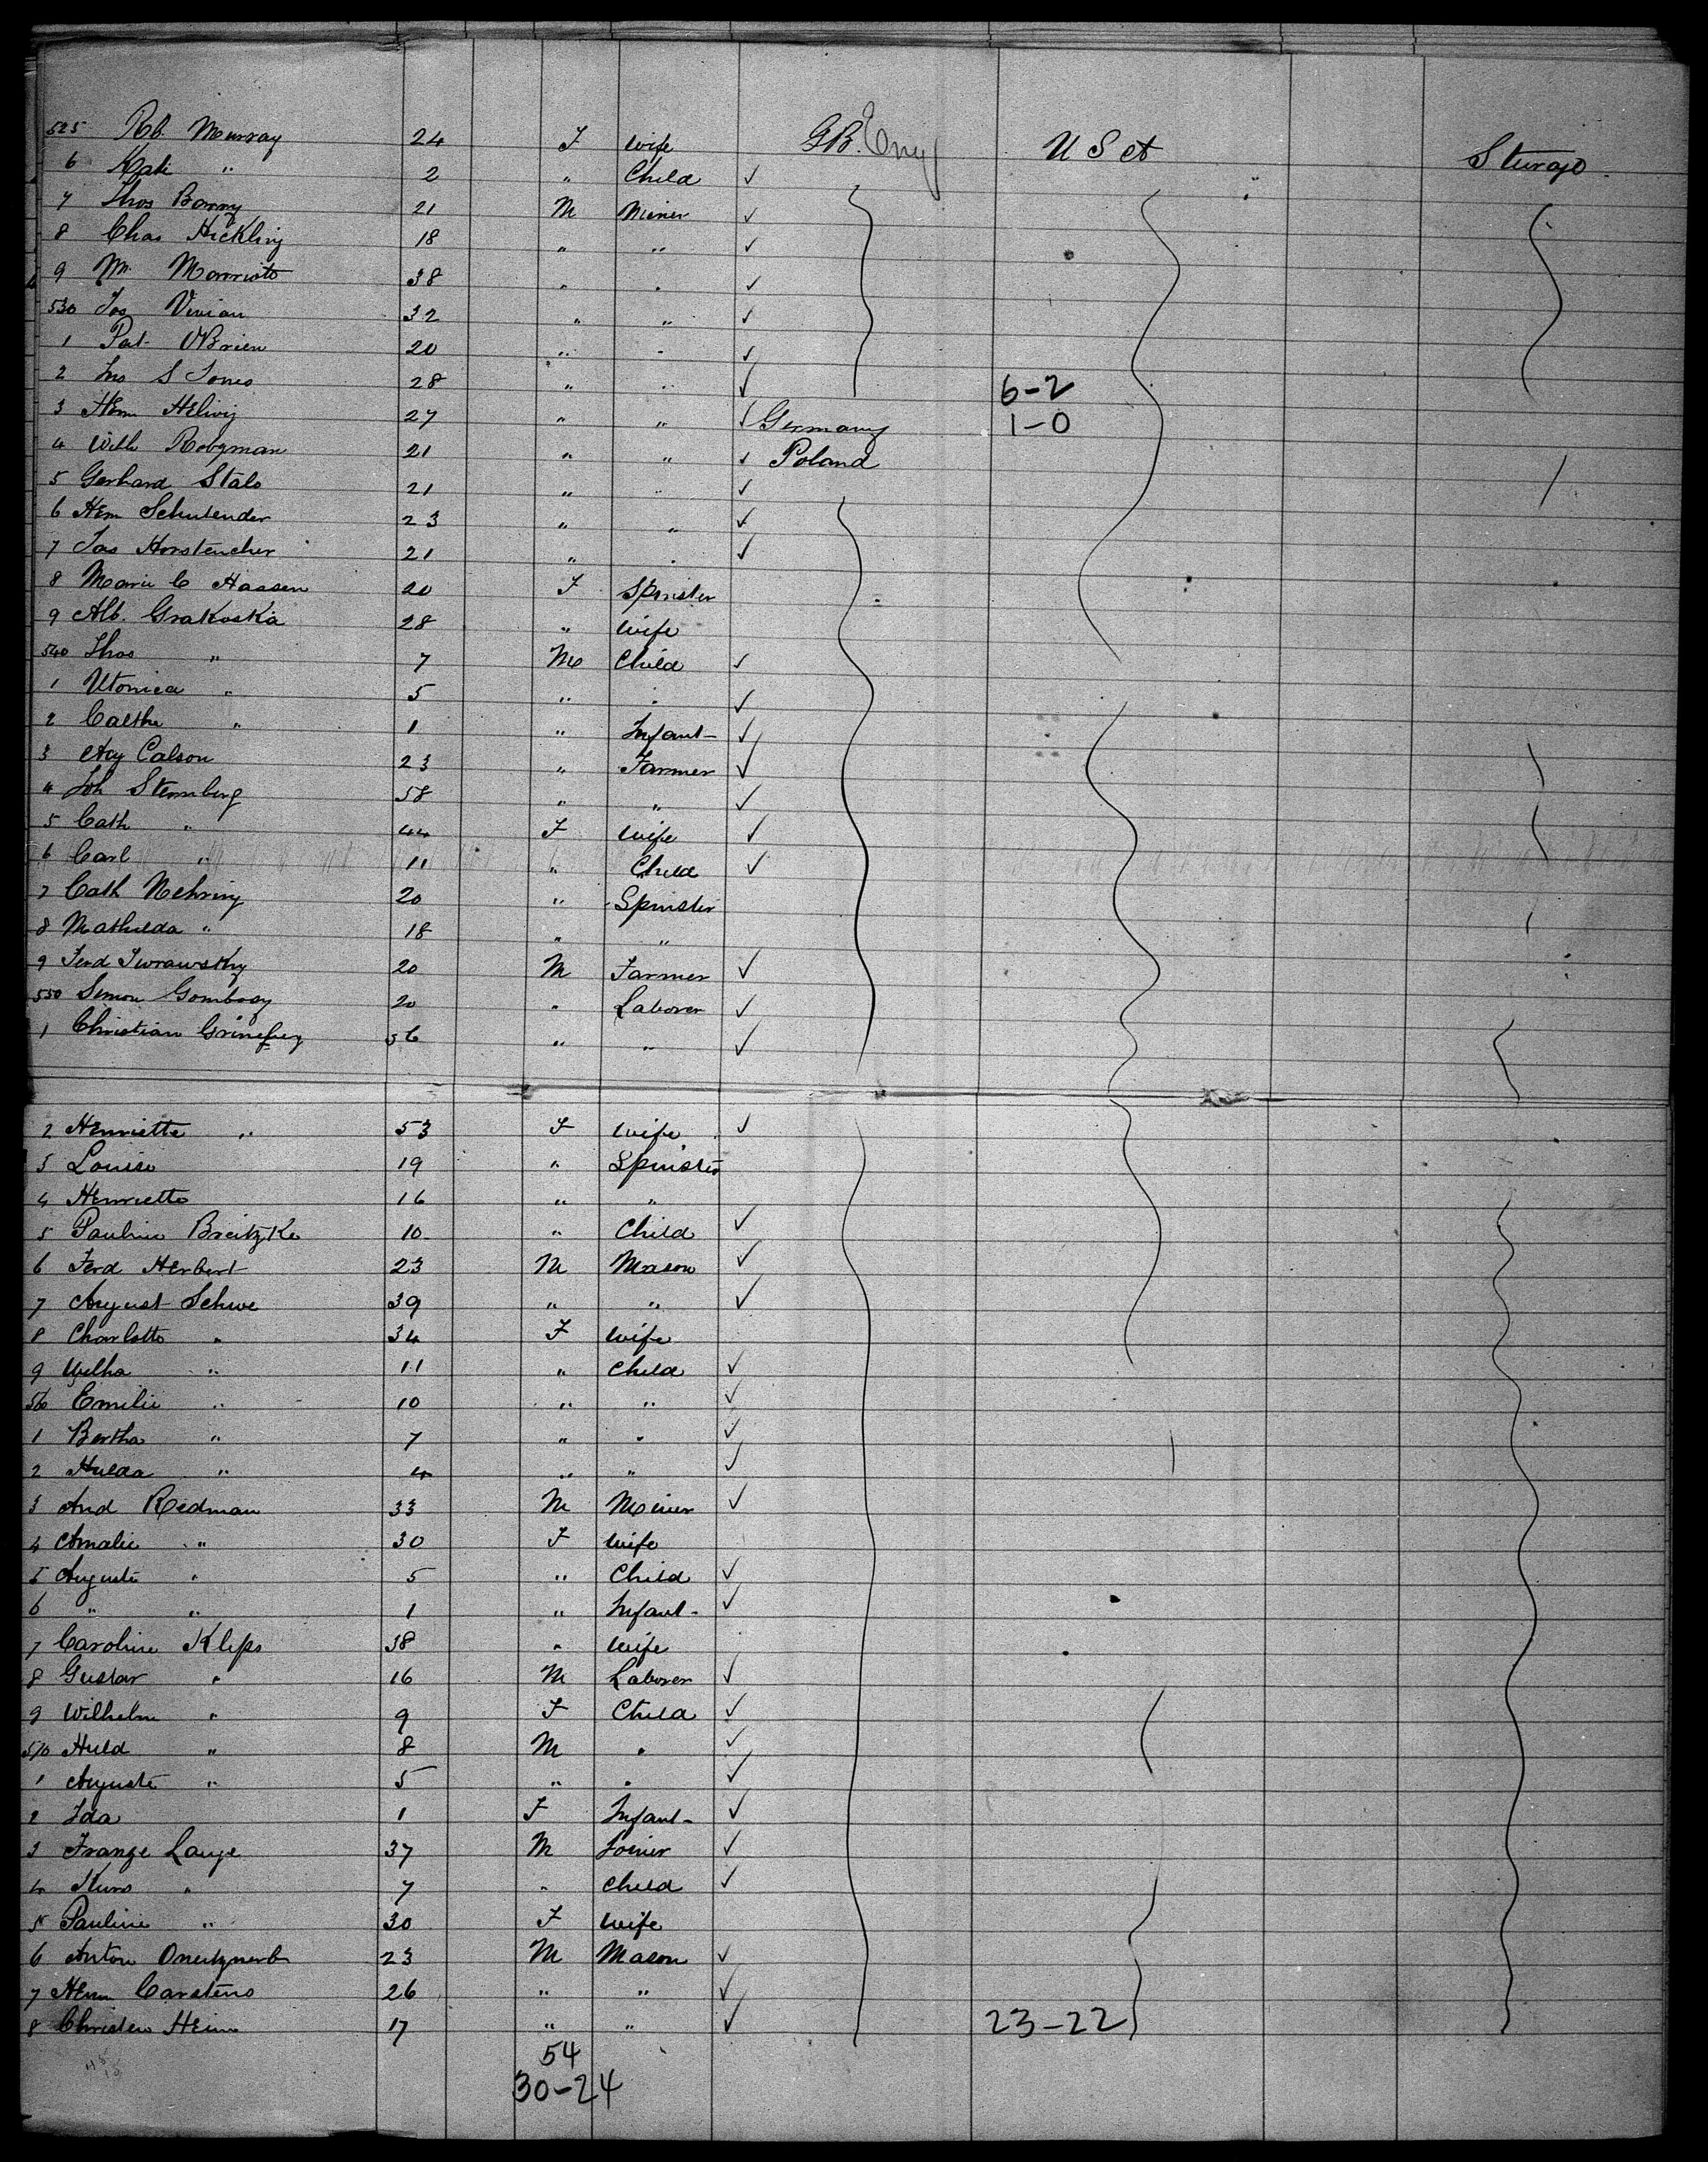 525 Rb. Murray 24 F wife GB. Eng U S A Sturage
6 Kate " 2 " Child ✓
7 Thos Barry 21 M Miner ✓
8 Chas Hickling 18 " " ✓
9 Wm Marriott 38 " " ✓
530 Jos Vivian 32 " " ✓
1 Pat O'Brien 20 " " ✓
2 Jno S Jones 28 " " ✓ 6-2
3 Herm Helwig 27 " " ✓ Germany 1-0
4 Wilh 21 " " ✓ Poland
5 Gerhard Stalo 21 " " ✓
6 Herm Schulender 23 " " ✓
7 Jas 21 " " ✓
8 Marie C Haasen 20 F Spinster
9 Alb. Grakoska 28 " wife
540 Thos " 7 M Child ✓
1 " 5 " " ✓
2 " 1 " Infant ✓
3 Aug Calson 23 " Farmer ✓
4 Joh Sternberg 58 " " ✓
5 Cath " 44 F wife ✓
6 Carl " 11 " Child ✓
7 Cath Nehring 20 " Spinster
8 Mathilda " 18 " "
9 Ferd 20 M Farmer ✓
550 Simon 20 " Laborer ✓
1 Christian 56 " " ✓
2 Henriette " 53 F wife ✓
3 Louise 19 " Spinster
4 Henriette 16 " "
5 Pauline Breitzke 10 " Child ✓
6 Ferd Herbert 23 M Mason ✓
7 August Schwe 39 " " ✓
8 Charlotte " 34 F wife
9 Wilha " 11 " Child ✓
560 Emilie " 10 " " ✓
1 Bertha " 7 " " ✓
2 Hulda " 4 " " ✓
3 And Redman 33 M Miner ✓
4 Amalie " 30 F wife
5 Auguste " 5 " Child ✓
6 " " 1 " Infant ✓
7 Caroline Kleps 38 " wife
8 Gustav " 16 M Laborer ✓
9 Wilhelm " 9 F Child ✓
570 Huld " 8 M " ✓
1 Auguste " 5 " " ✓
2 Ida 1 F Infant ✓
3 Franze Lange 37 M Joiner ✓
4 " 7 " Child ✓
5 Pauline " 30 F wife
6 Anton 23 M Mason ✓
7 Herm Carstens 26 " " ✓
8 Christen Heim 17 " " ✓ 23-22
54
30-24